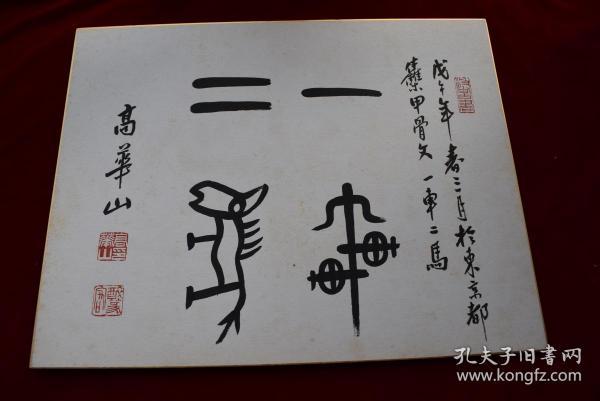 戊午年春三月於東京都
集甲骨文一車二馬
一車
二馬
高華山
孔夫子旧书网
www.kongfz.com